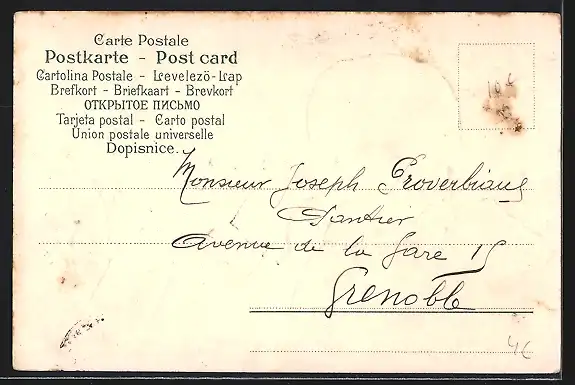 Carte Postale
Postkarte - Post card
Cartolina Postale - Levelező-Lap
Brefkort - Briefkaart - Brevkort
ОТКРЫТОЕ ПИСЬМО
Tarjeta postal - Carto postal
Union postale universelle
Dopisnice.
10€
Monsieur Joseph
Avenue de la Gare 15
Grenoble
4€